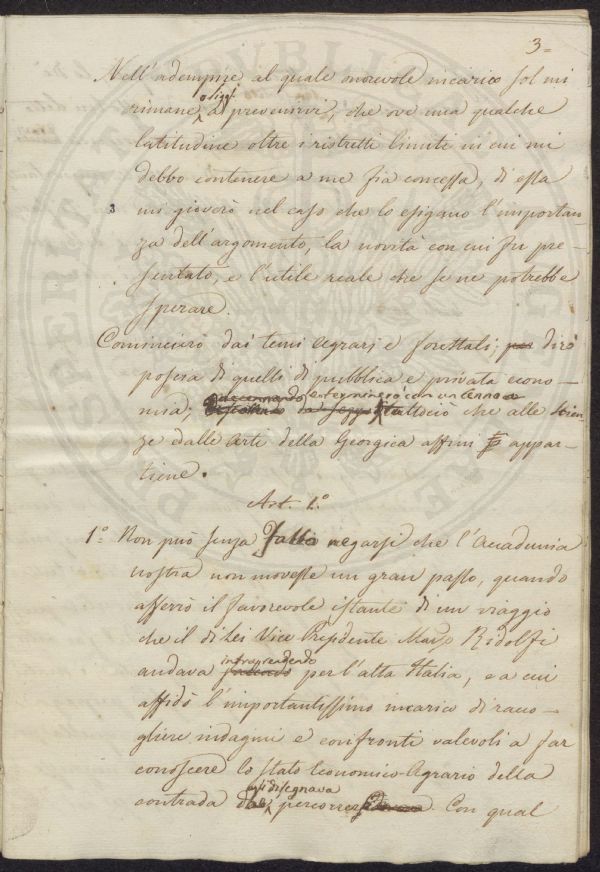 3=
Nell'adempire al quale onorevole incarico sol mi
rimane oggi a prevenirvi, che ove una qualche
latitudine oltre i ristretti limiti in cui mi
debbo contenere a me fia concessa, di essa
3
mi gioverò nel caso che lo esigano l'importan-
za dell'argomento, la novità con cui fu pre-
sentato, e l'utile reale che se ne potrebbe
sperare.
Comincierò dai temi agrarj e forestali; dirò
poscia di quelli di pubblica e privata econo-
mia; e terminerò con un cenno a
tuttociò che alle scien-
ze e dalle arti della Georgica affini appar-
tiene.
Art. 1.°
1.° Non può senza fallo negarsi che l'Accademia
nostra non movesse un gran passo, quando
afferrò il favorevole istante di un viaggio
che il di Lei Vice Presidente March. Ridolfi
andava intraprendendo per l'alta Italia, e a cui
affidò l'importantissimo incarico di racco-
gliere indagini e confronti valevoli a far
conoscere lo stato Economico-Agrario della
contrada percorrere. Con qual
PROSPERITATI PUBLICAE AUG